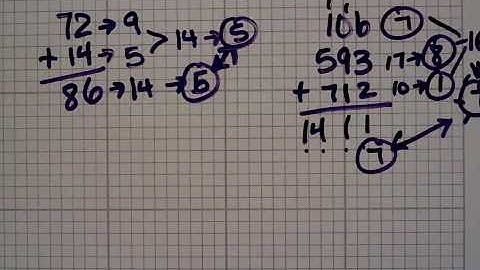 72 → 9
+ 14 → 5 > 14 → 5
86 → 14 → 5
106 7
593 17 → 8
+ 712 10 → 1
1411
7